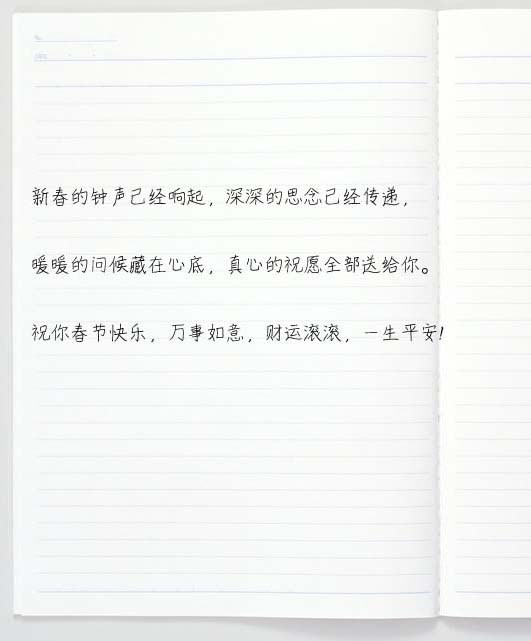 新春的钟声已经响起，深深的思念已经传递，
暖暖的问候藏在心底，真心的祝愿全部送给你。
祝你春节快乐，万事如意，财运滚滚，一生平安！